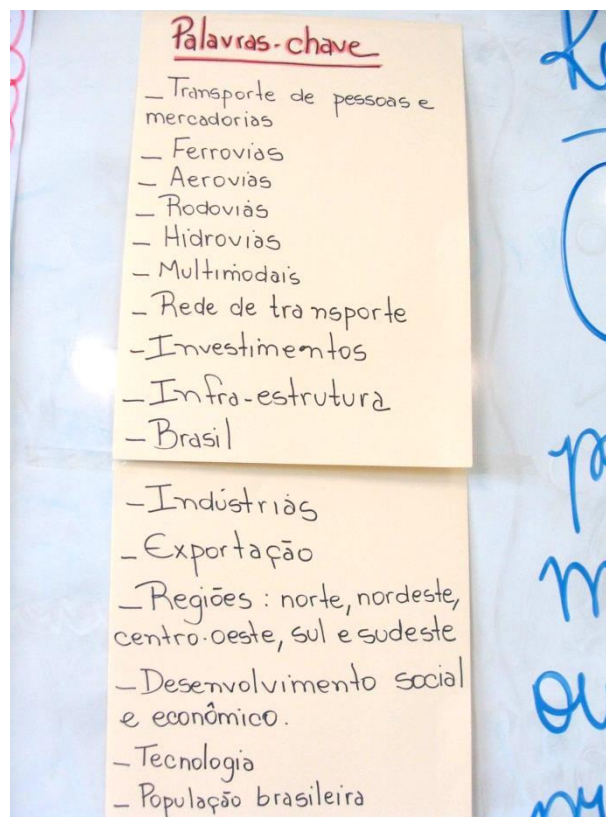 Palavras-chave
- Transporte de pessoas e
mercadorias
- Ferrovias
- Aerovias
- Rodovias
- Hidrovias
- Multimodais
- Rede de transporte
- Investimentos
- Infra-estrutura
- Brasil
- Indústrias
- Exportação
- Regiões: norte, nordeste,
centro-oeste, sul e sudeste
- Desenvolvimento social
e econômico.
- Tecnologia
- População brasileira